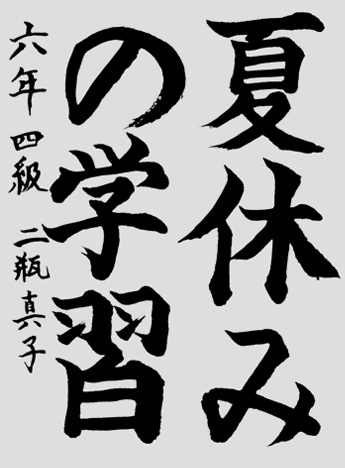 夏休み
の学習
六年 四級 二瓶真子